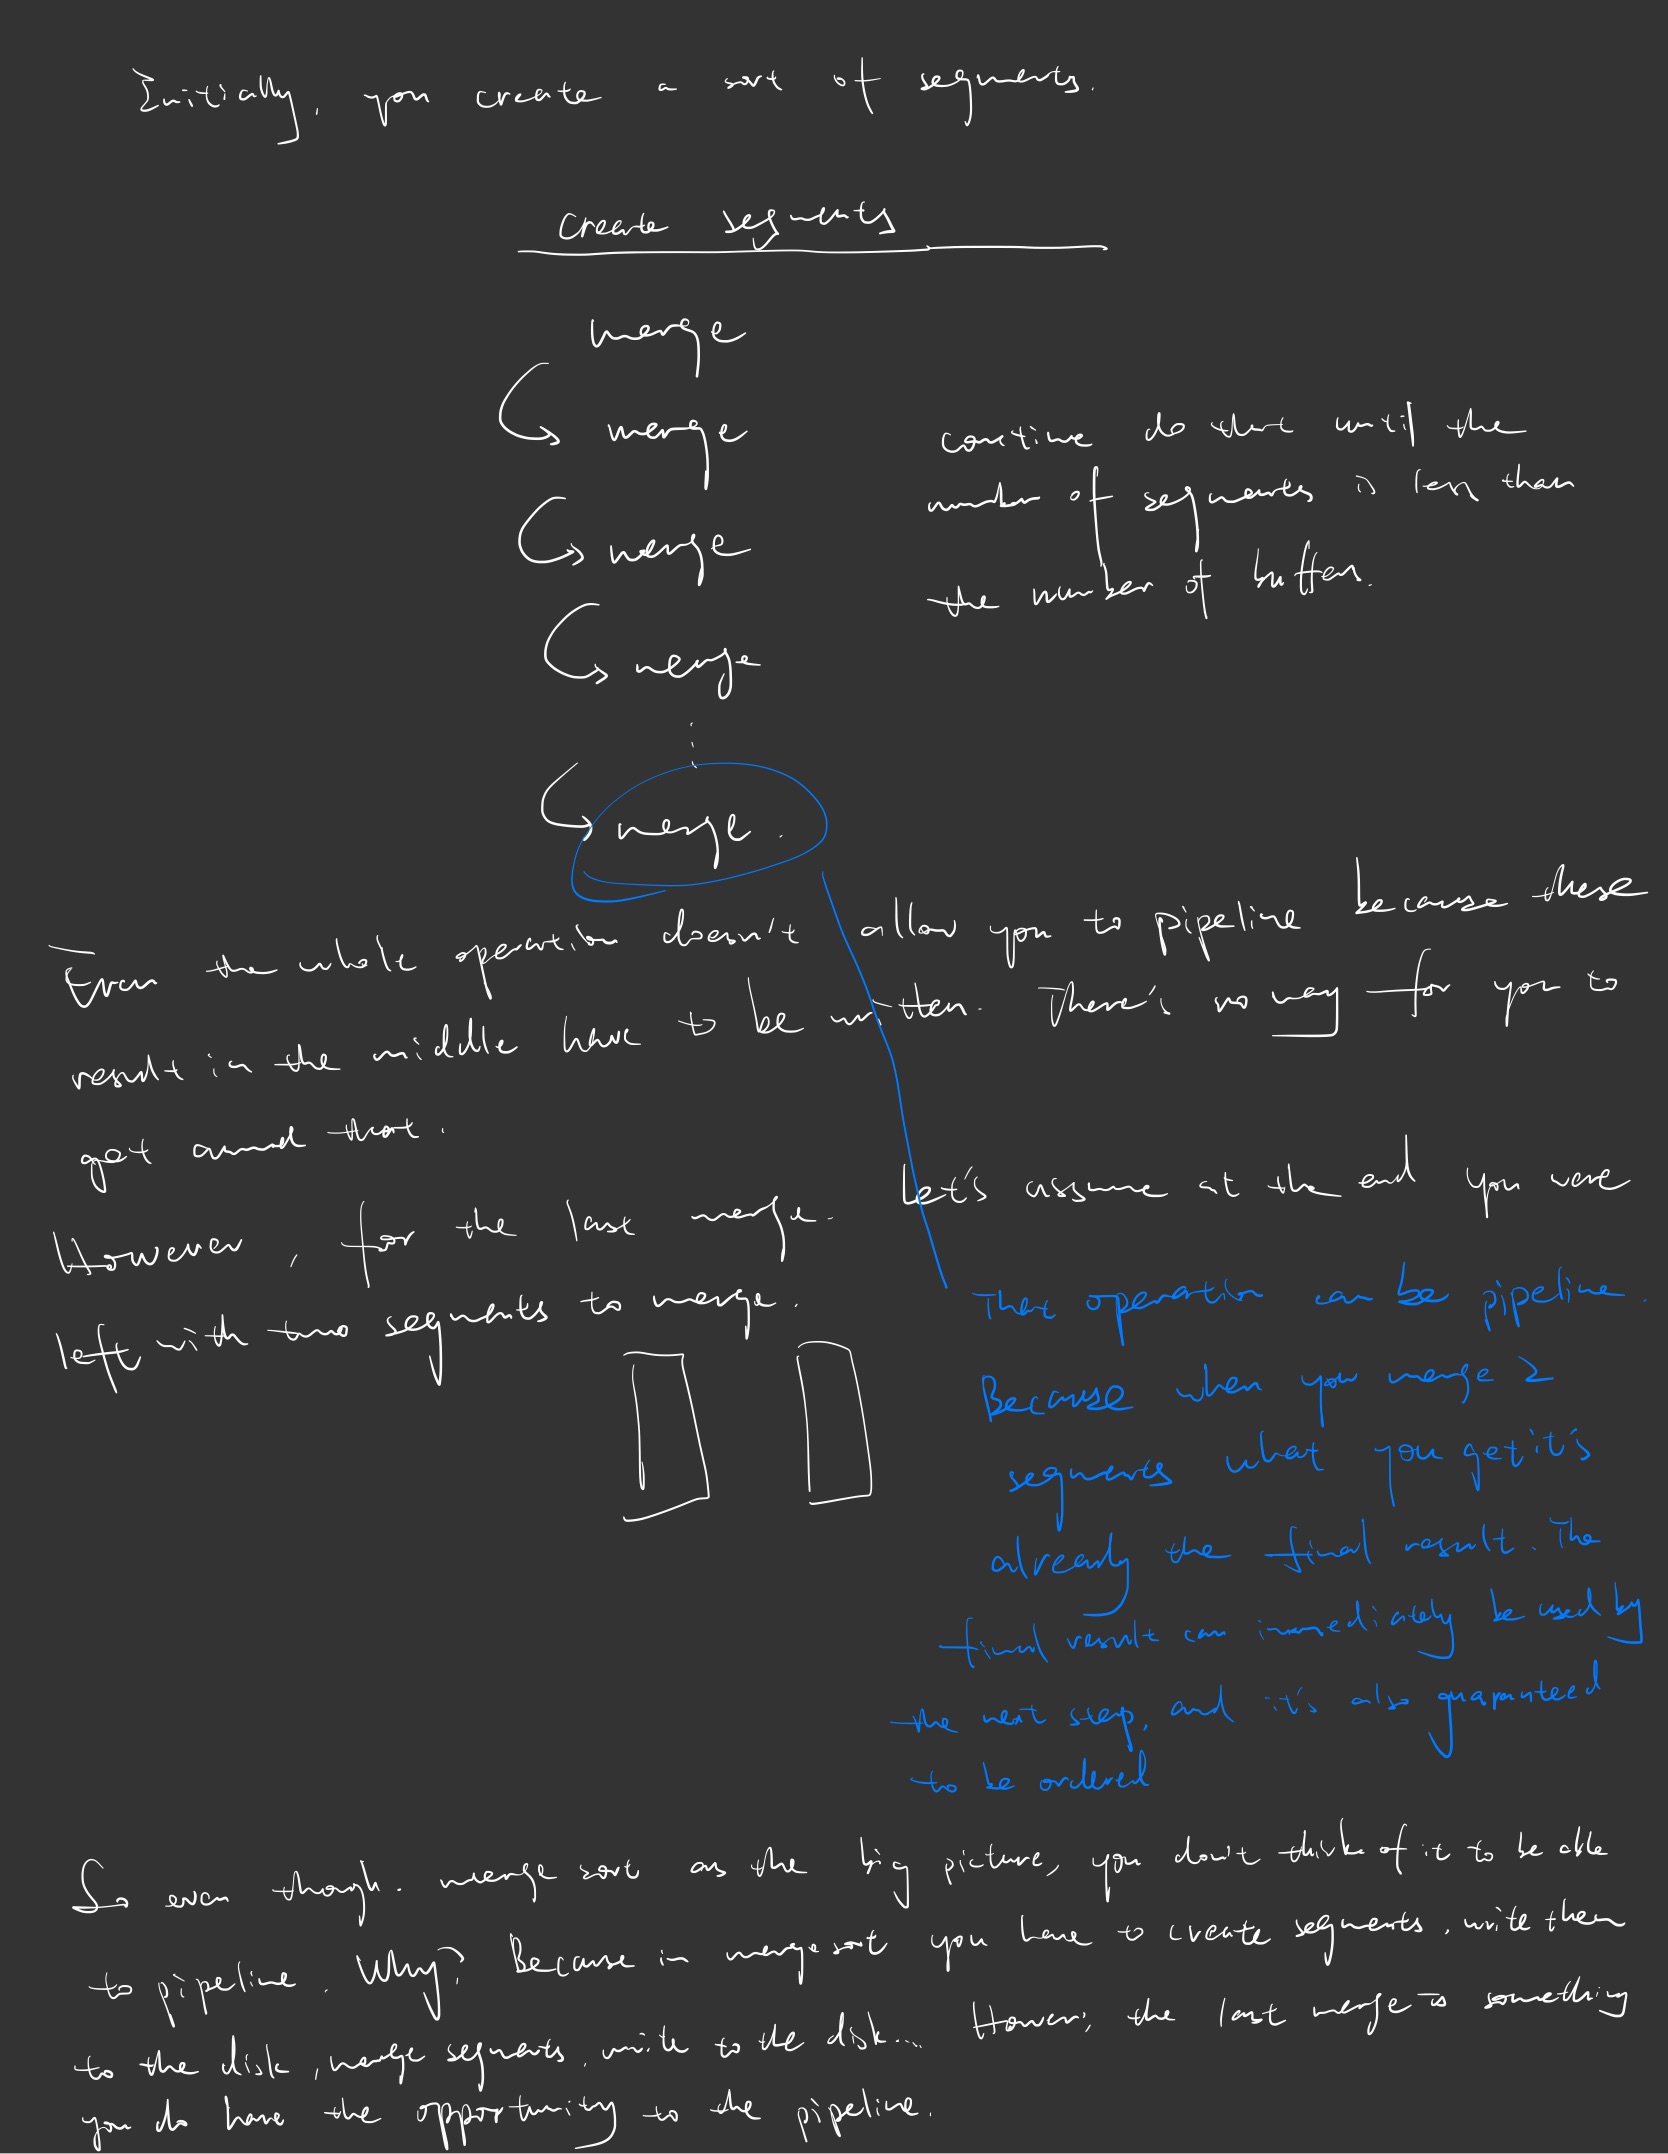 Initially, you create a sort of segments.
create segments
merge
merge
merge
merge
merge.
continue do that until the
number of segments is less than
the number of buffers.
Even the whole operation doesn't allow you to pipeline because these
result in the middle have to be written. There's no way for you to
get around that.
However, for the last merge. Let's assume at the end you were
left with two segments to merge.
That operation can be pipeline.
Because when you merge 2
segments what you get it's
already the final result. The
final result can immediately be used by
the next step, and it's also guaranteed
to be ordered
So even though. merge sort as the big picture, you don't think of it to be able
to pipeline. Why? Because in merge sort you have to create segments, write them
to the disk, merge segments, write to the disk... However, the last merge is something
you do have the opportunity to the pipeline.